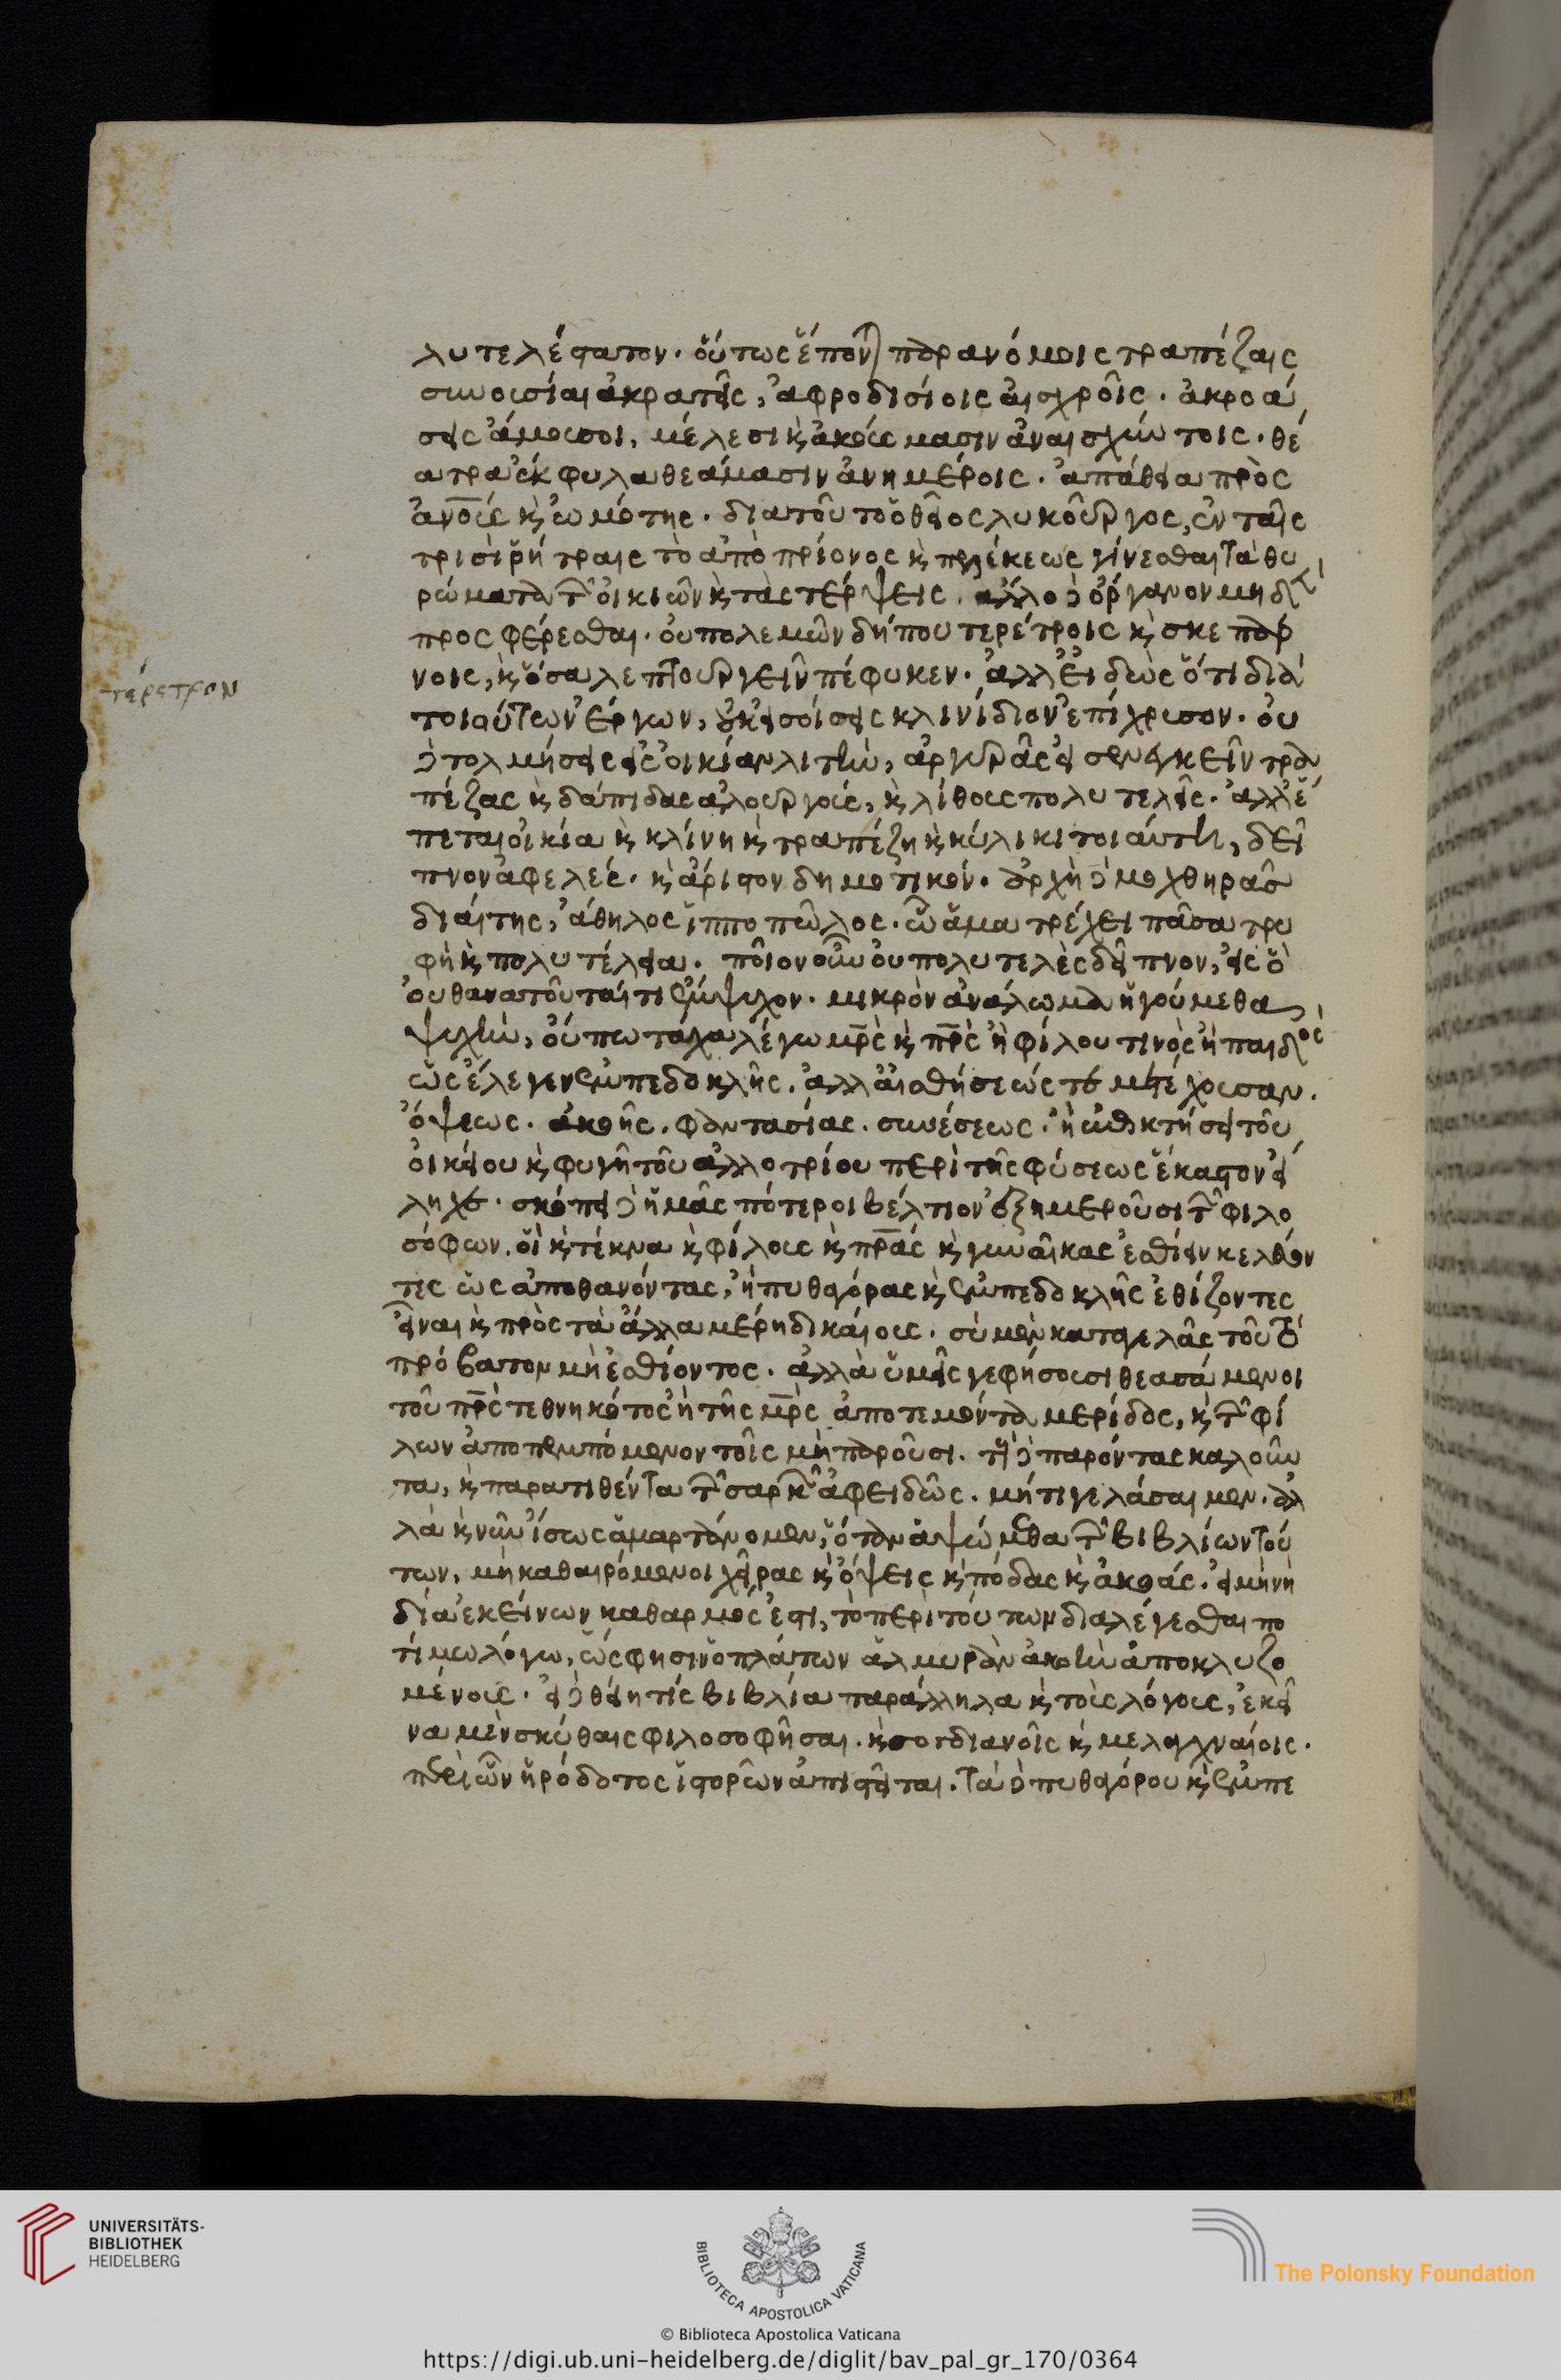 λυτελέστατον. οὕτως ἕπονται παρανόμοις τραπέζαις
συνουσίαι ἀκρατεῖς, ἀφροδισίοις αἰσχροῖς. ἀκροά
σεις ἄμουσοι, μέλεσι κ̀ ἀκούσμασιν ἀναισχύντοις. θέ
ατρα ἔκφυλα θεάμασιν ἀνημέροις. ἀπάθεια πρὸς
ἀνοὺς κ̀ ὠμότης. διατοῦτο ὁ θεῖος λυκοῦργος, ἐν ταῖς
τρισὶ ῥήτραις τὸ ἀπὸ πρίονος κ̀ πελέκεως γίνεσθαι τὰ θυ
ρώματα τῶν οἰκιῶν κ̀ τὰς τέρψεις. ἄλλο δὲ ὄργανον μηδὲ
προσφέρεσθαι. οὐ πολεμῶν δήπου τερέτροις κ̀ σκεπάρ
νοις, κ̀ ὅσα λεπτουργεῖν πέφυκεν. ἀλλ' εἰδὼς ὅτι διὰ
τέρετρον
τοιούτων ἔργων, οὐκ εἰσοίσεις κλινίδιον ἐπίχρυσον. οὐ
δὲ τολμήσεις εἰς οἰκίαν λιτὴν, ἀργυρᾶς εἰσενεγκεῖν τρα
πέζας κ̀ δάπιδας ἁλουργοὺς, κ̀ λίθους πολυτελεῖς. ἀλλ' ἕ
πεται οἰκία κ̀ κλίνη κ̀ τραπέζη κ̀ κύλικι τοιαύτη, δεῖ
πνον ἀφελές. κ̀ ἄριστον δημοτικόν. ἀρχῇ δὲ μοχθηρᾶς
διαίτης, ἄθηλος ἵππο πῶλος. ὣ ἅμα τρέχει πᾶσα τρυ
φὴ κ̀ πολυτέλεια. ποῖον οὖν οὐ πολυτελὲς δεῖπνον, εἰς ὃ
οὐ θανατοῦταί τι ἔμψυχον. μικρὸν ἀνάλωμα ἡγούμεθα
ψυχὴν, οὔπω τάχα λέγω μρ̅ς κ̀ πρ̅ς ἢ φίλου τινὸς ἢ παιδὸς
ὡς ἔλεγεν ἐμπεδοκλῆς. ἀλλ' αἰσθήσεώς τε μετέχουσαν.
ὄψεως. ἀκοῆς. φαντασίας. συνέσεως. ἣν ἐπὶ κτήσει τοῦ
οἰκείου κ̀ φυγῆ τοῦ ἀλλοτρίου περὶ τῆς φύσεως ἕκαστον εἴ
ληχε. σκόπει δὲ ἡμᾶς πότεροι βέλτιον ἐξημεροῦσι τῶν φιλο
σόφων. οἳ κ̀ τέκνα κ̀ φίλους κ̀ πρ̅ας κ̀ γυναῖκας ἐσθίειν κελεύον
τες ὡς ἀποθανόντας, ἢ πυθαγόρας κ̀ ἐμπεδοκλῆς ἐθίζοντες
εἶναι κ̀ πρὸς τὰ ἄλλα μέρη δικαίους. σὺ μὲν καταγελᾶς τοῦ τὸ
πρόβατον μὴ ἐσθίοντος. ἀλλὰ ὑμεῖς γεφήσουσι θεασάμενοι
τοῦ πρ̅ς τεθνηκότος ἢ τῆς μρ̅ς ἀποτεμόντα μερίδας, κ̀ τῶν φί
λων ἀποπεμπόμενον τοῖς μὴ παροῦσι. τοὺς δὲ παρόντας καλοῦν
τα, κ̀ παρατιθέντα τῶν σαρκῶν ἀφειδῶς. μή τι γελάσαιμεν. ἀλ
λὰ κ̀ νῦν ἴσως ἁμαρτάνομεν, ὅταν ἁψώμεθα τῶν βιβλίων τού
των, μὴ καθαιρόμενοι χεῖρας κ̀ ὄψεις κ̀ πόδας κ̀ ἀκοάς. εἰ μὴ νὴ
δία ἐκείνων καθαρμός ἐστι, τὸ περὶ τούτων διαλέγεσθαι πο
τίμω λόγω, ὥς φησιν ὁ πλάτων ἁλμυρὰν ἀκοὴν ἀποκλυζο
μένους. εἰ δὲ θείη τις βιβλία παράλληλα κ̀ τοὺς λόγους, ἐκεῖ
να μὲν σκύθαις φιλοσοφῆσαι. κ̀ σογδιανοῖς κ̀ μελαγχναίοις.
περὶ ὧν ἡρόδοτος ἱστορῶν ἀπιστεῖται. τὰ δὲ πυθαγόρου κ̀ ἐμπε
UNIVERSITÄTS-
BIBLIOTHEK
HEIDELBERG
BIBLIOTECA APOSTOLICA VATICANA
The Polonsky Foundation
© Biblioteca Apostolica Vaticana
https://digi.ub.uni-heidelberg.de/diglit/bav_pal_gr_170/0364